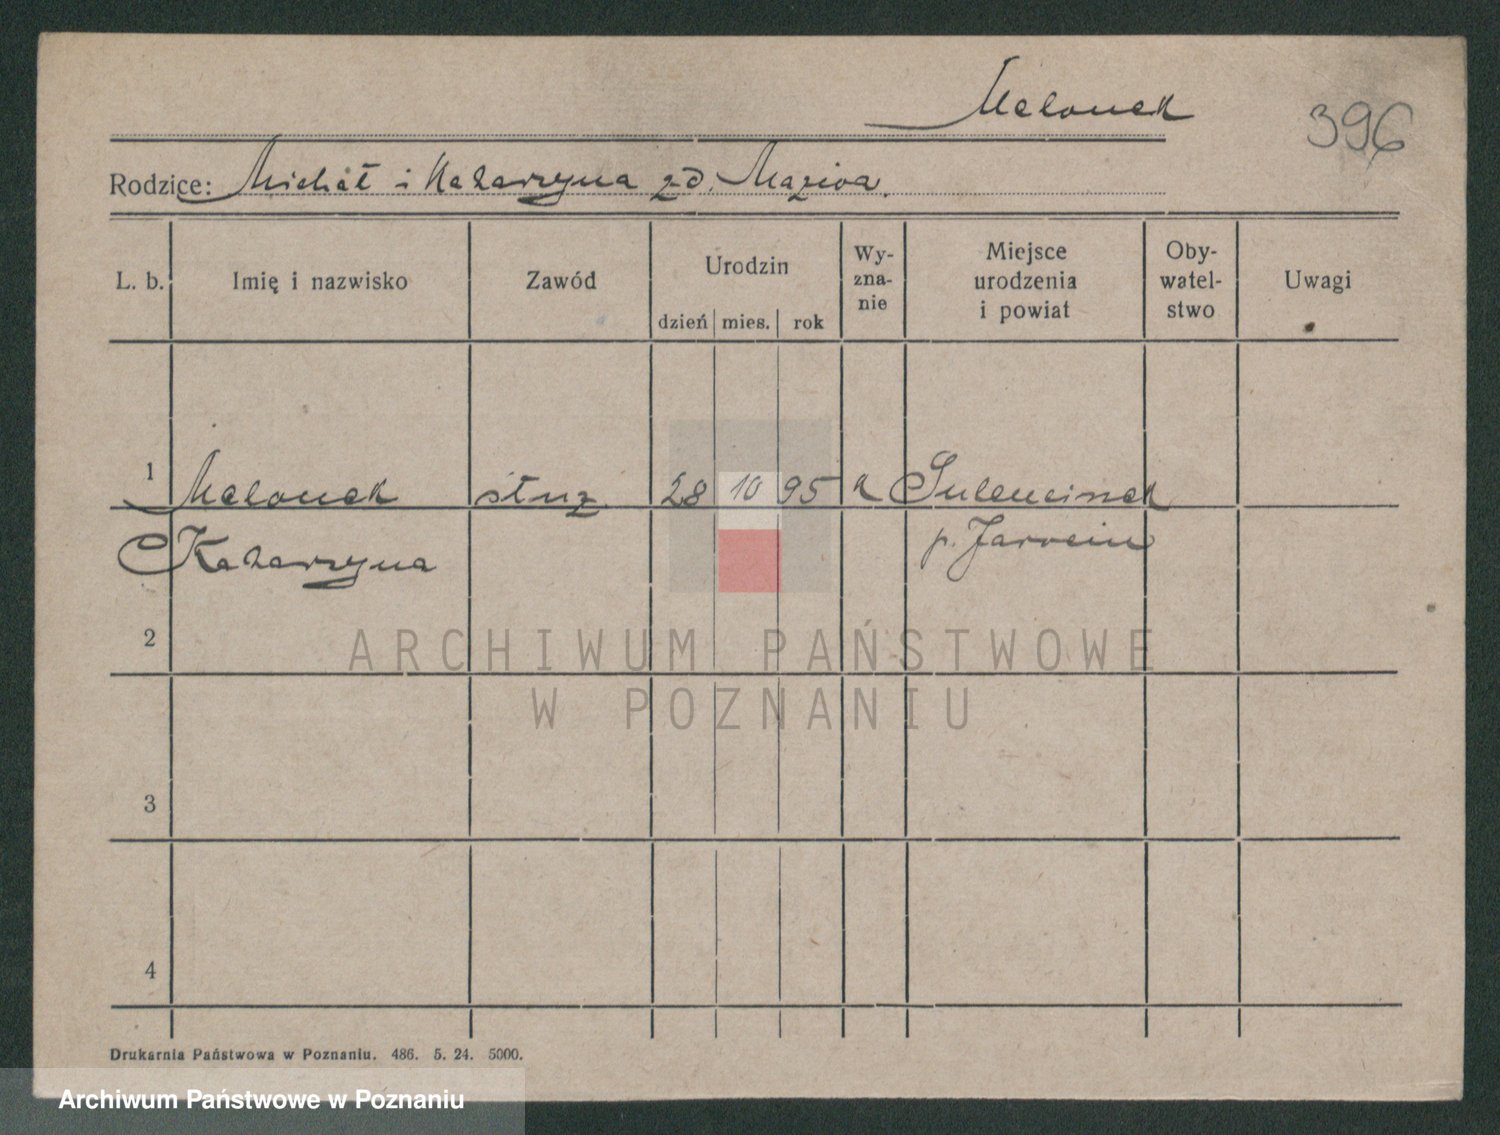 Melonek
396
Rodzice: Michał i Katarzyna zd.
L. b.
Imię i nazwisko
Zawód
Urodzin
dzień mies. rok
Wy-
zna-
nie
Miejsce
urodzenia
i powiat
Oby-
watel-
stwo
Uwagi
1 Melonek służ. 28 10 95 k Sulencinek
Katarzyna p. Jarocin
2
3
4
ARCHIWUM PAŃSTWOWE
W POZNANIU
Drukarnia Państwowa w Poznaniu. 486. 5. 24. 5000.
Archiwum Państwowe w Poznaniu